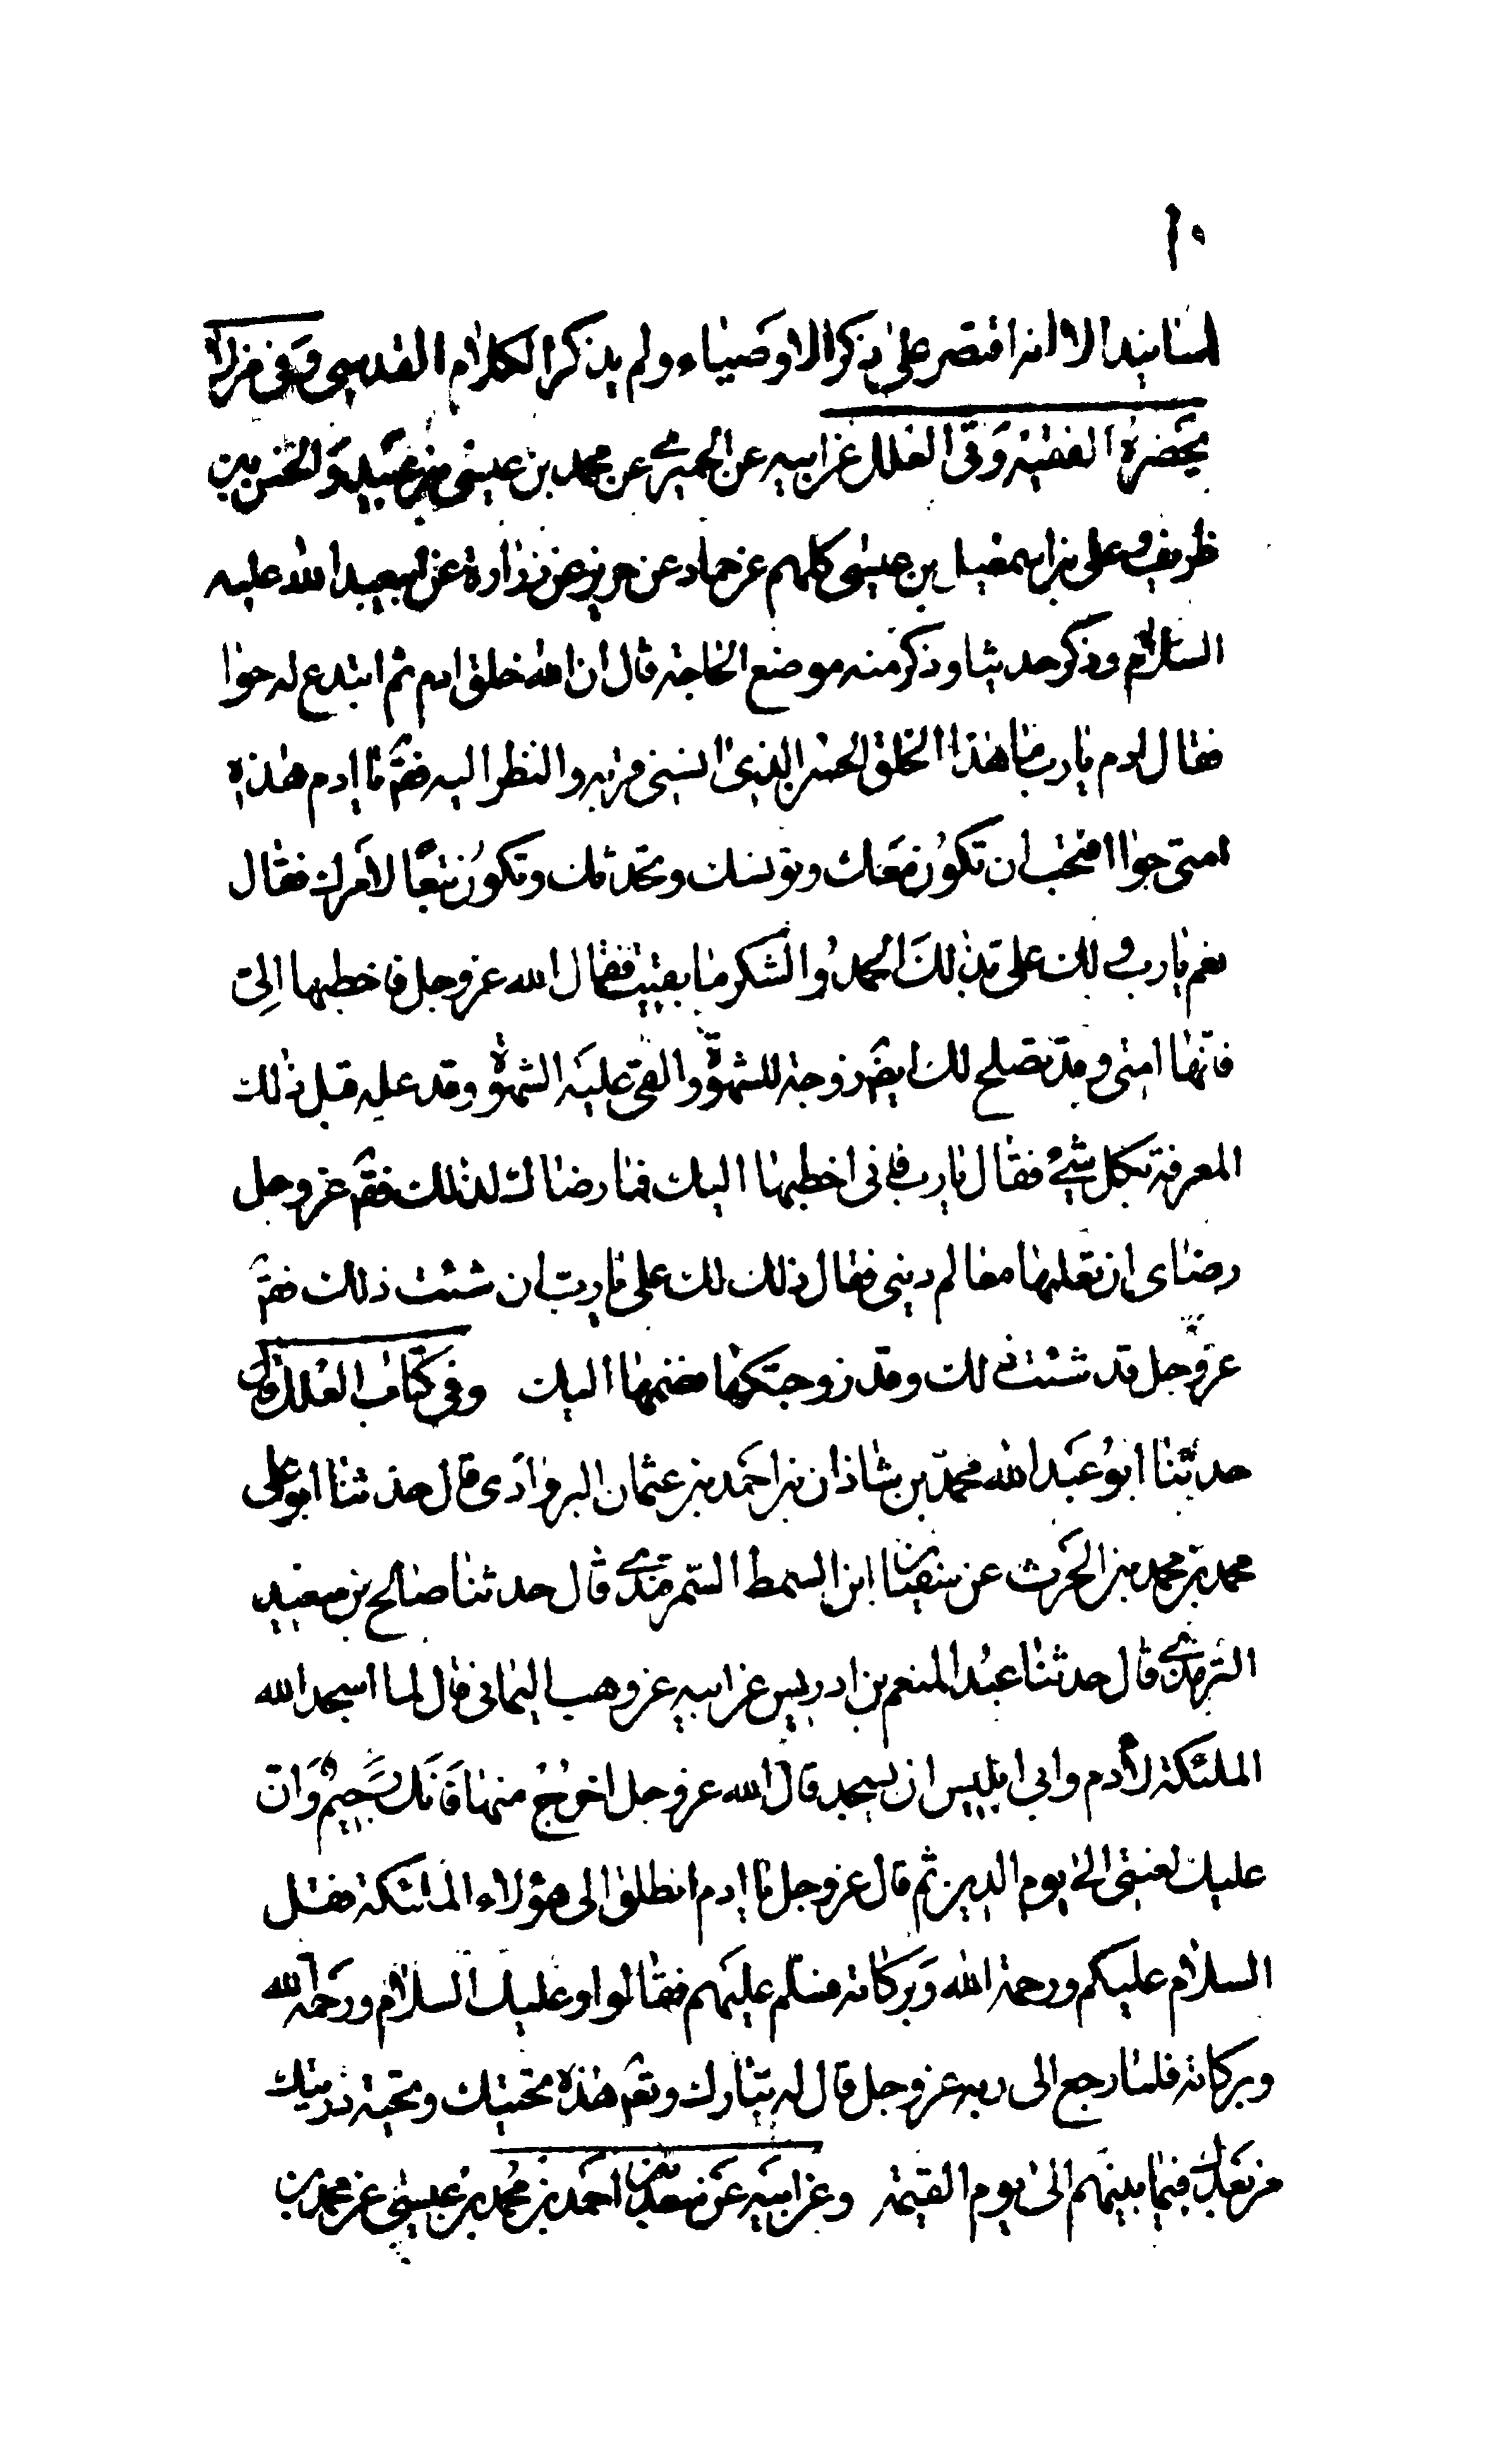 ١٠
اسانيد الا انه اقتصر على ذكر الاوصياء ولم يذكر الكلام القدسى وفى من لا
يحضره الفقيه وفى العلل عن ابيه عن الحميرى عن محمد بن عيسى بن عبيد والحسن بن
ظريف وعلى بن اسمعيل بن عيسى كلهم عن حماد عن حريز عن زرارة عن ابيعبد الله عليه
السلام وذكر حديثا وذكر منه موضع الحاجة قال ان الله خلق ادم ثم ابتدع له حوا
فقال ادم يا رب ما هذا الخلق الحسن الذى انسنى قربه والنظر اليه فقَ يا ادم هذه
امتى حوا افتحب ان تكون معك وتونسك وتحدثك وتكون تبعًا لامرك فقال
نعم يا رب ولك على بذلك الحمد والشكر ما بقيت فقال الله عز وجل فاخطبها الى
فانها امتى وقد تصلح لك ايضَ زوجة للشهوة والقى عليه الشهوة وقد علمه قبل ذلك
المعرفة بكل شئ فقال يا رب فانى اخطبها اليك فما رضاك لذلك فقَ عز وجل
رضاى ان تعلمها معالم دينى فقال ذلك لك على يا رب ان شئت ذلك فقَ
عز وجل قد شئت ذلك وقد زوجتكها فضمها اليك وفى كتاب العلل قال
حدثنا ابو عبد الله محمد بن شاذان بن احمد بن عثمان البروازى قال حدثنا ابو على
محمد بن محمد بن الحرث عن سفيان ابن السمط السمرقندى قال حدثنا صالح بن سعيد
الترمذى قال حدثنا عبد المنعم بن ادريس عن ابيه عن وهب اليمانى قال لما اسجد الله
الملئكة لأدم وابى ابليس ان يسجد قال الله عز وجل اخرج منها فانك رجيم وان
عليك لعنتى الى يوم الدين ثم قال عز وجل يا ادم انطلق الى هؤلاء الملئكة فقل
السلام عليكم ورحمة الله وبركاته فسلم عليهم فقالوا وعليك السلام ورحمة الله
وبركاته فلما رجع الى ربه عز وجل قال له تبارك وتعَ هذه تحيتك وتحية ذريتك
من بعدك فيما بينهم الى يوم القيمة وعن ابيه عن سعد عن احمد بن محمد بن عيسى عن محمد بن